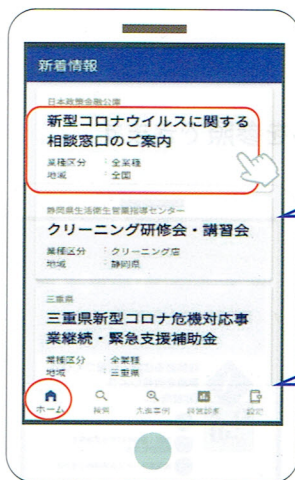 新着情報
日本政策金融公庫
新型コロナウイルスに関する
相談窓口のご案内
業種区分 : 全業種
地域 : 全国
静岡県生活衛生営業指導センター
クリーニング研修会・講習会
業種区分 : クリーニング店
地域 : 静岡県
三重県
三重県新型コロナ危機対応事
業継続・緊急支援補助金
業種区分 : 全業種
地域 : 三重県
ホーム 検索 先進事例 経営診断 設定